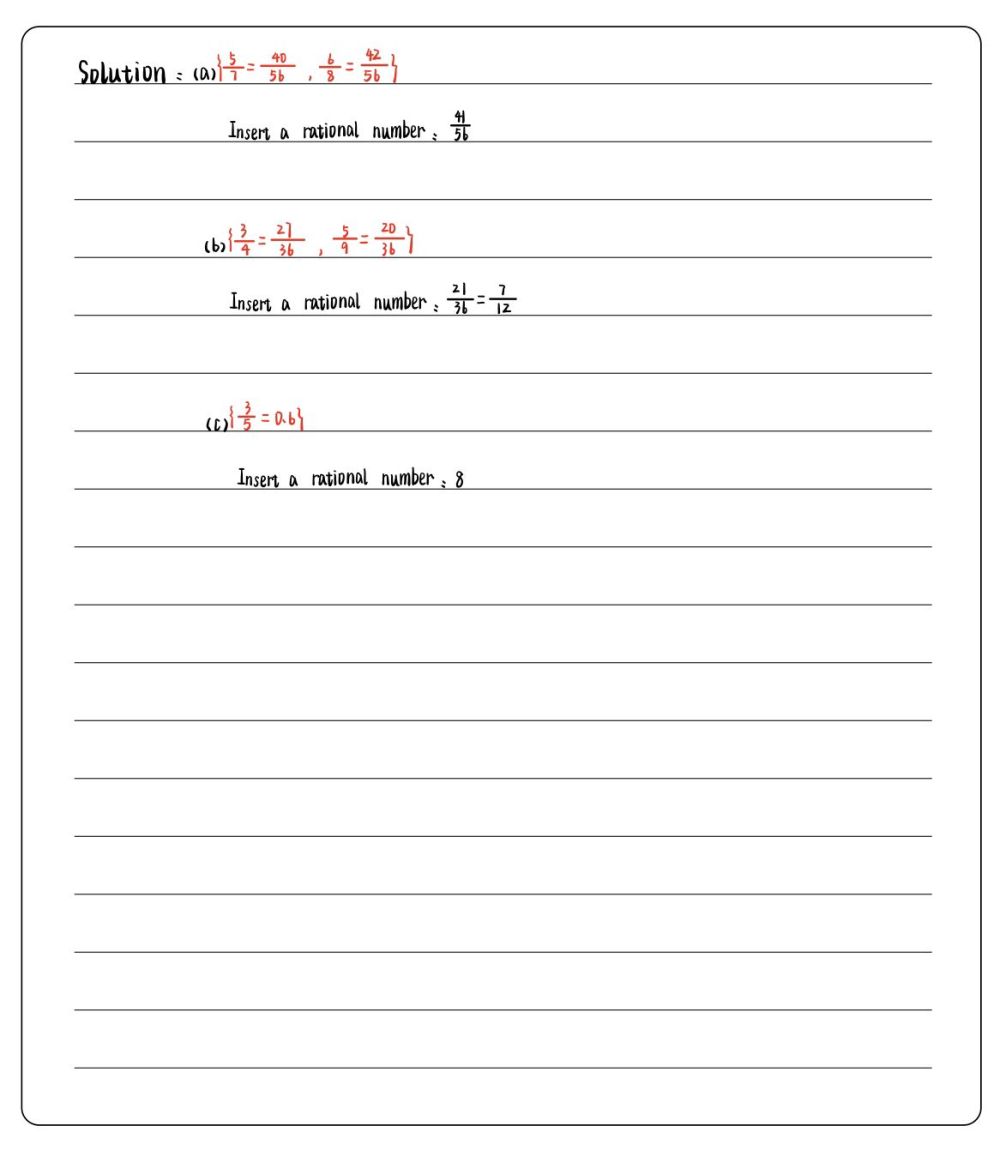 Solution : (a){5/7 = 40/56 , 6/8 = 42/56}
Insert a rational number : 41/56
(b){3/4 = 27/36 , 5/9 = 20/36}
Insert a rational number : 21/36 = 7/12
(c){3/5 = 0.6}
Insert a rational number : 8